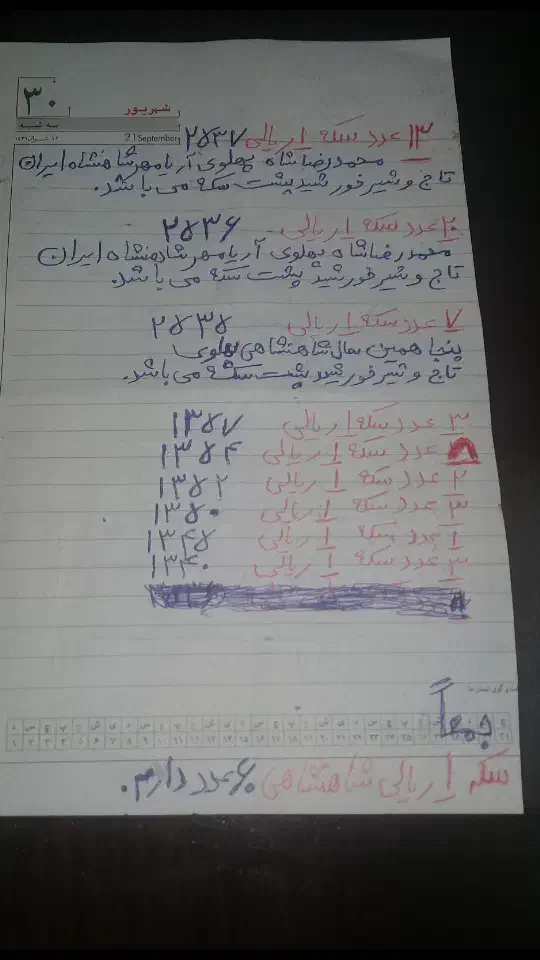 ۳۰
شهریور
سه شنبه
21 September
۱۳ عدد سکه ۱ ریالی ۲۵۳۷
محمدرضا شاه پهلوی آریامهر شاهنشاه ایران
تاج و شیر خورشید پشت سکه می باشد.
۲۰ عدد سکه ۱ ریالی ۲۵۳۶
محمدرضا شاه پهلوی آریامهر شاهنشاه ایران
تاج و شیر خورشید پشت سکه می باشد.
۷ عدد سکه ۱ ریالی ۲۵۳۵
پنجاهمین سال شاهنشاهی پهلوی
تاج و شیر خورشید پشت سکه می باشد.
۳ عدد سکه ۱ ریالی ۱۳۵۷
۸ عدد سکه ۱ ریالی ۱۳۵۴
۲ عدد سکه ۱ ریالی ۱۳۵۲
۳ عدد سکه ۱ ریالی ۱۳۵۰
۱ عدد سکه ۱ ریالی ۱۳۴۵
۳ عدد سکه ۱ ریالی ۱۳۴۰
جمعاً
سکه ۱ ریالی شاهنشاهی ۶۰ عدد دارم.